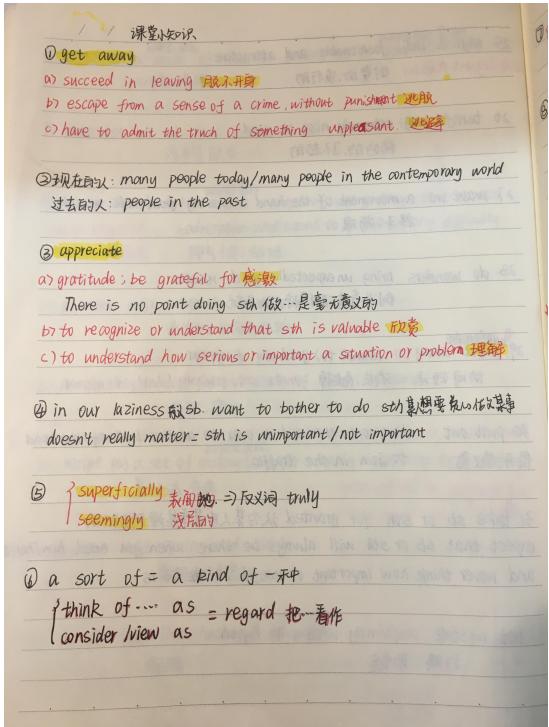 课堂小知识
① get away
a> succeed in leaving 脱不开身
b> escape from a sense of a crime, without punishment 逃脱
c> have to admit the truch of something unpleasant 逃避
② 现在的人: many people today/many people in the contemporary world
过去的人: people in the past
③ appreciate
a> gratitude; be grateful for 感激
There is no point doing sth 做…是毫无意义的
b> to recognize or understand that sth is valuable 欣赏
c> to understand how serious or important a situation or problem 理解
④ in our laziness sb. want to bother to do sth 想要 做某事
doesn't really matter = sth is unimportant/not important
⑤ superficially 表面地 => 反义词 truly
seemingly 浅层的
⑥ a sort of = a kind of 一种
think of .... as = regard 把…看作
consider/view as